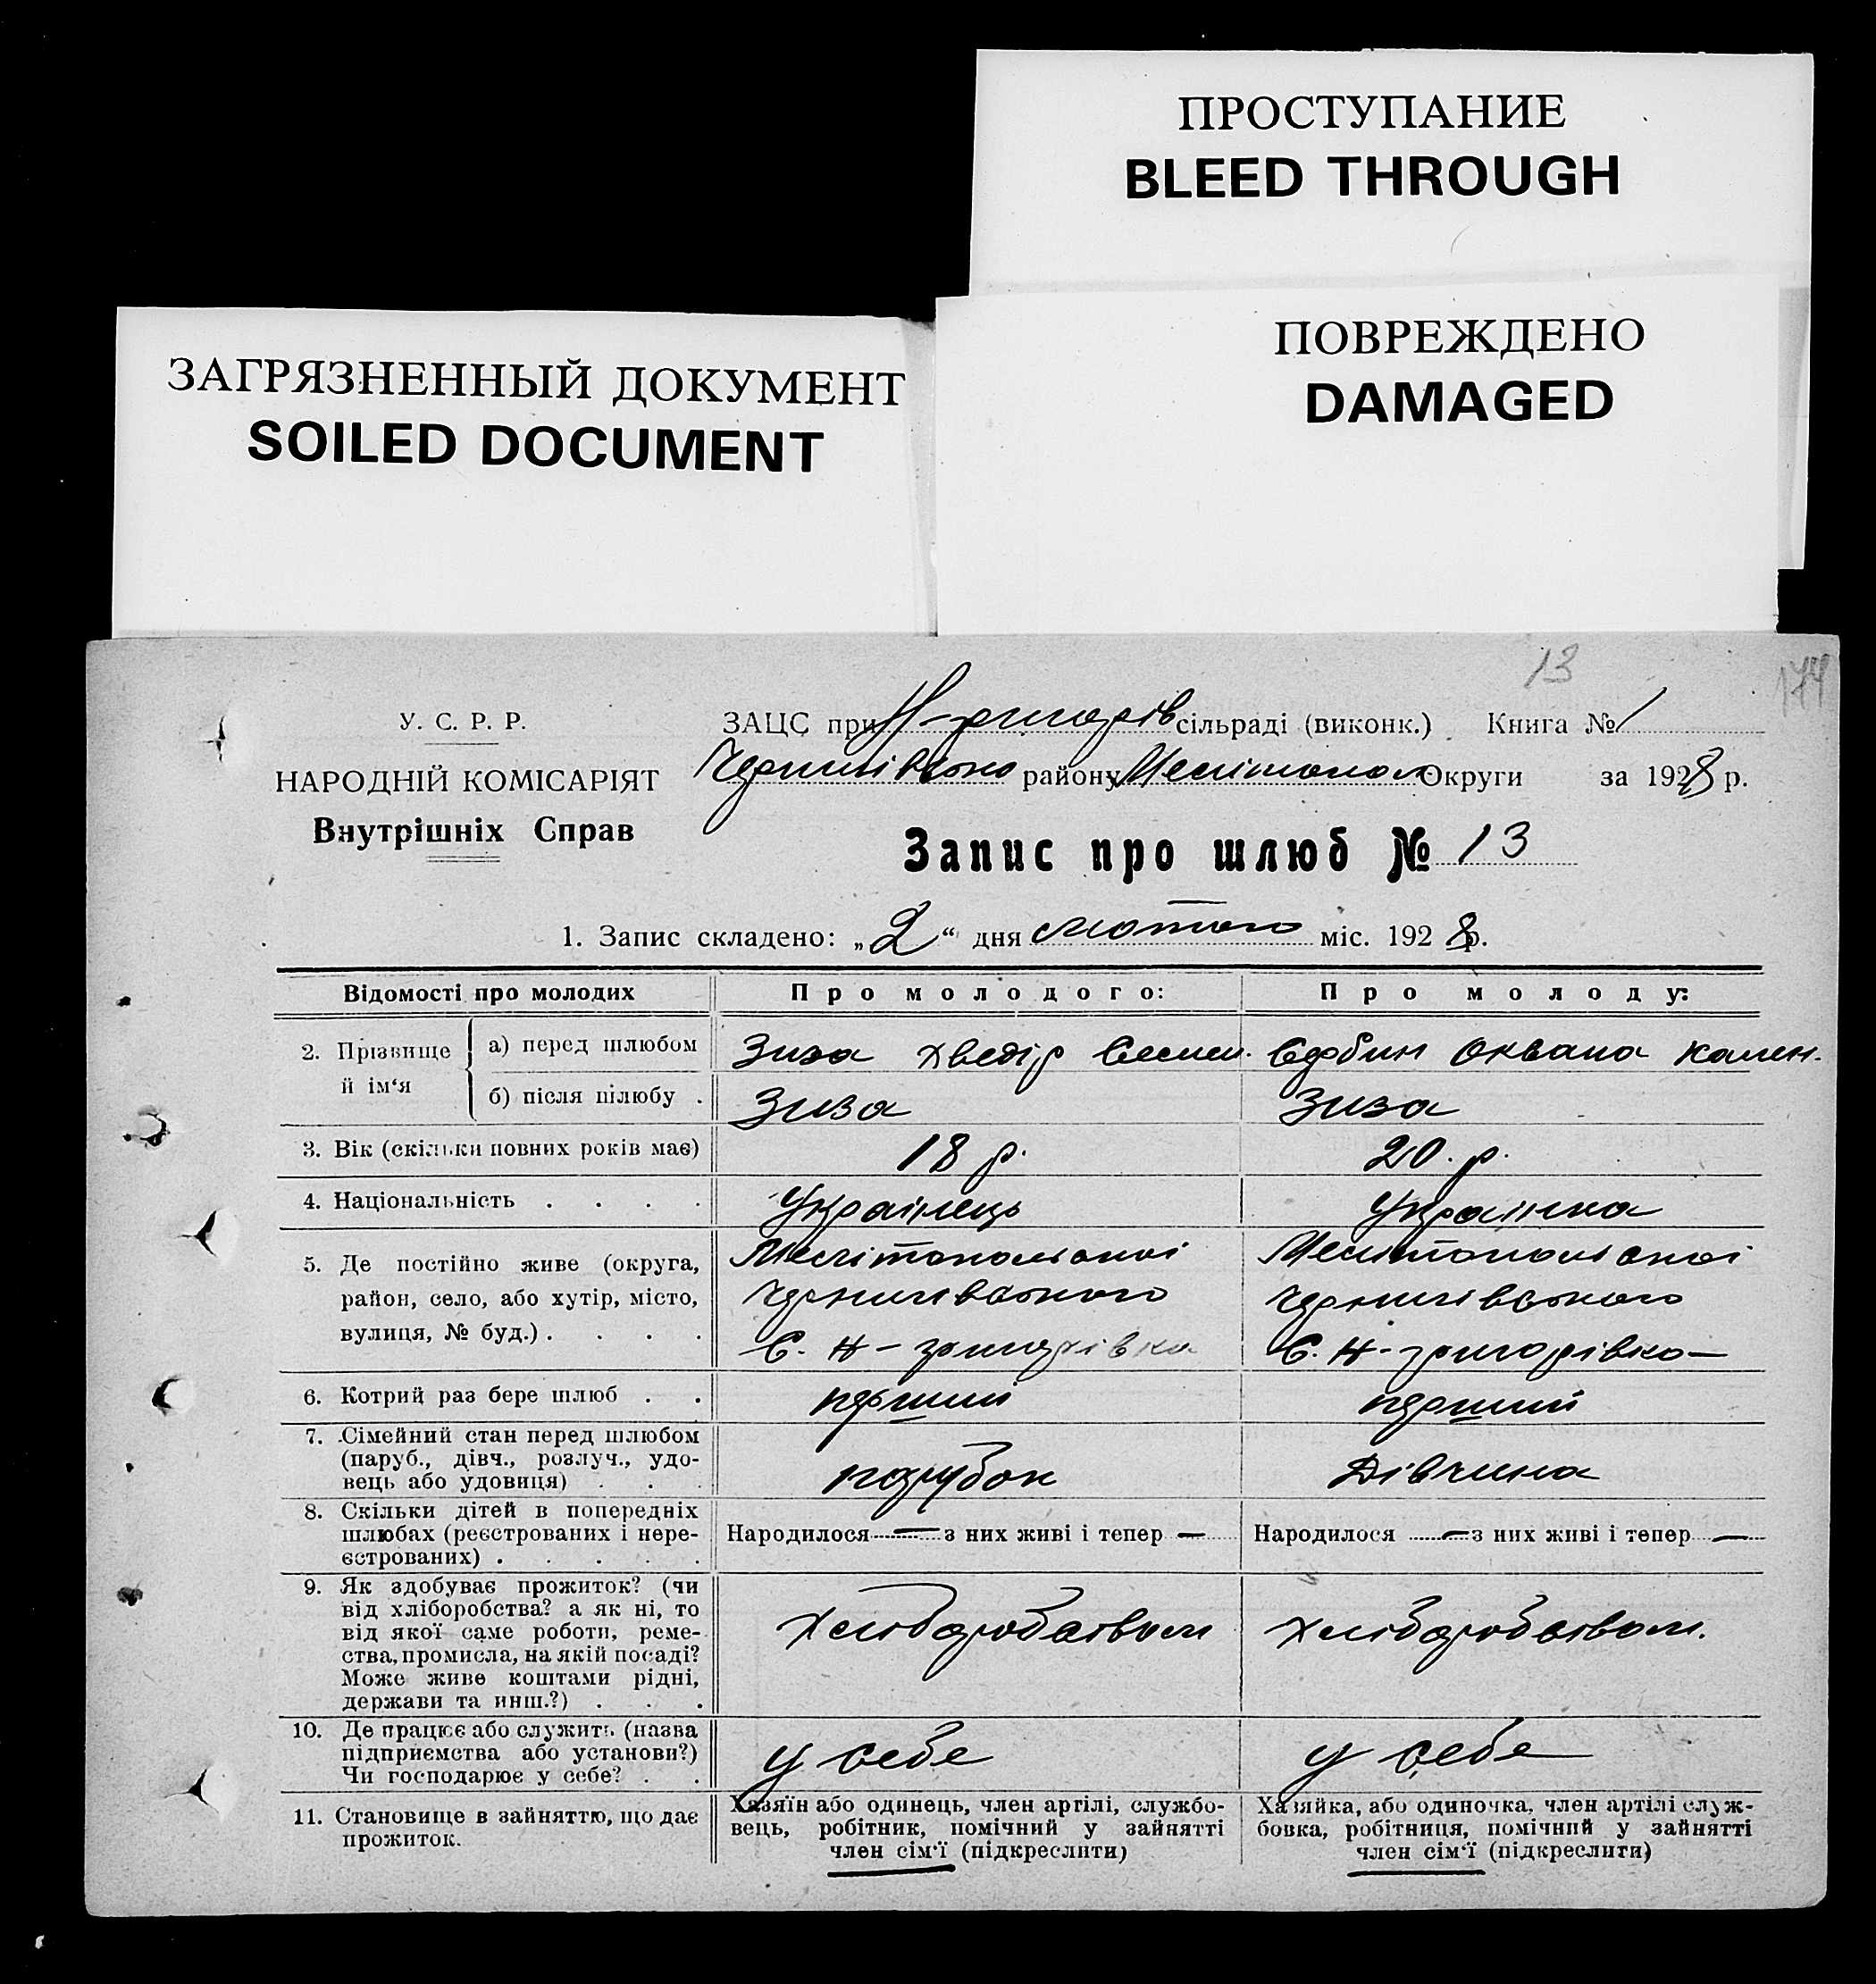 ПРОСТУПАНИЕ
BLEED THROUGH
ПОВРЕЖДЕНО
DAMAGED
ЗАГРЯЗНЕННЫЙ ДОКУМЕНТ
SOILED DOCUMENT
13
174
У. С. Р. Р.
ЗАЦС при Н-григорів сільраді (виконк.) Книга № 1
НАРОДНІЙ КОМІСАРІЯТ
Чернигівсько району Мелітопол Округи за 1928 р.
Внутрішніх Справ
Запис про шлюб № 13
1. Запис складено: „2“ дня лютого міс. 1928 р.
Відомості про молодих
Про молодого:
Про молоду:
2. Прізвище й ім‘я
а) перед шлюбом
Зиза Хведір Семен.
Сербин Оксана Кален.
б) після шлюбу .
Зиза
Зиза
3. Вік (скільки повних років має)
18 р.
20. р.
4. Національність . . . .
Українець
Українка
5. Де постійно живе (округа,
район, село, або хутір, місто,
вулиця, № буд.) . . . .
Мелітопольської
Чернигівського
С. Н-григорівка
Мелітопольської
Чернигівського
С. Н-григорівка
6. Котрий раз бере шлюб . .
перший
перший
7. Сімейний стан перед шлюбом
(паруб., дівч., розлуч., удо-
вець або удовиця) . . .
парубок
Дівчина
8. Скільки дітей в попередніх
шлюбах (реєстрованих і нере-
єстрованих) . . . . .
Народилося — з них живі і тепер —
Народилося — з них живі і тепер —
9. Як здобуває прожиток? (чи
від хліборобства? а як ні, то
від якої саме роботи, реме-
ства, промисла, на якій посаді?
Може живе коштами рідні,
держави та инш.?) . . .
Хліборобством
Хліборобством.
10. Де працює або служить (назва
підприємства або установи?)
Чи господарює у себе? . .
у себе
у себе
11. Становище в зайняттю, що дає
прожиток.
Хазяїн або одинець, член артілі, службо-
вець, робітник, помічний у зайнятті
член сім‘ї (підкреслити)
Хазяйка, або одиночка, член артілі служ-
бовка, робітниця, помічний у зайнятті
член сім‘ї (підкреслити)